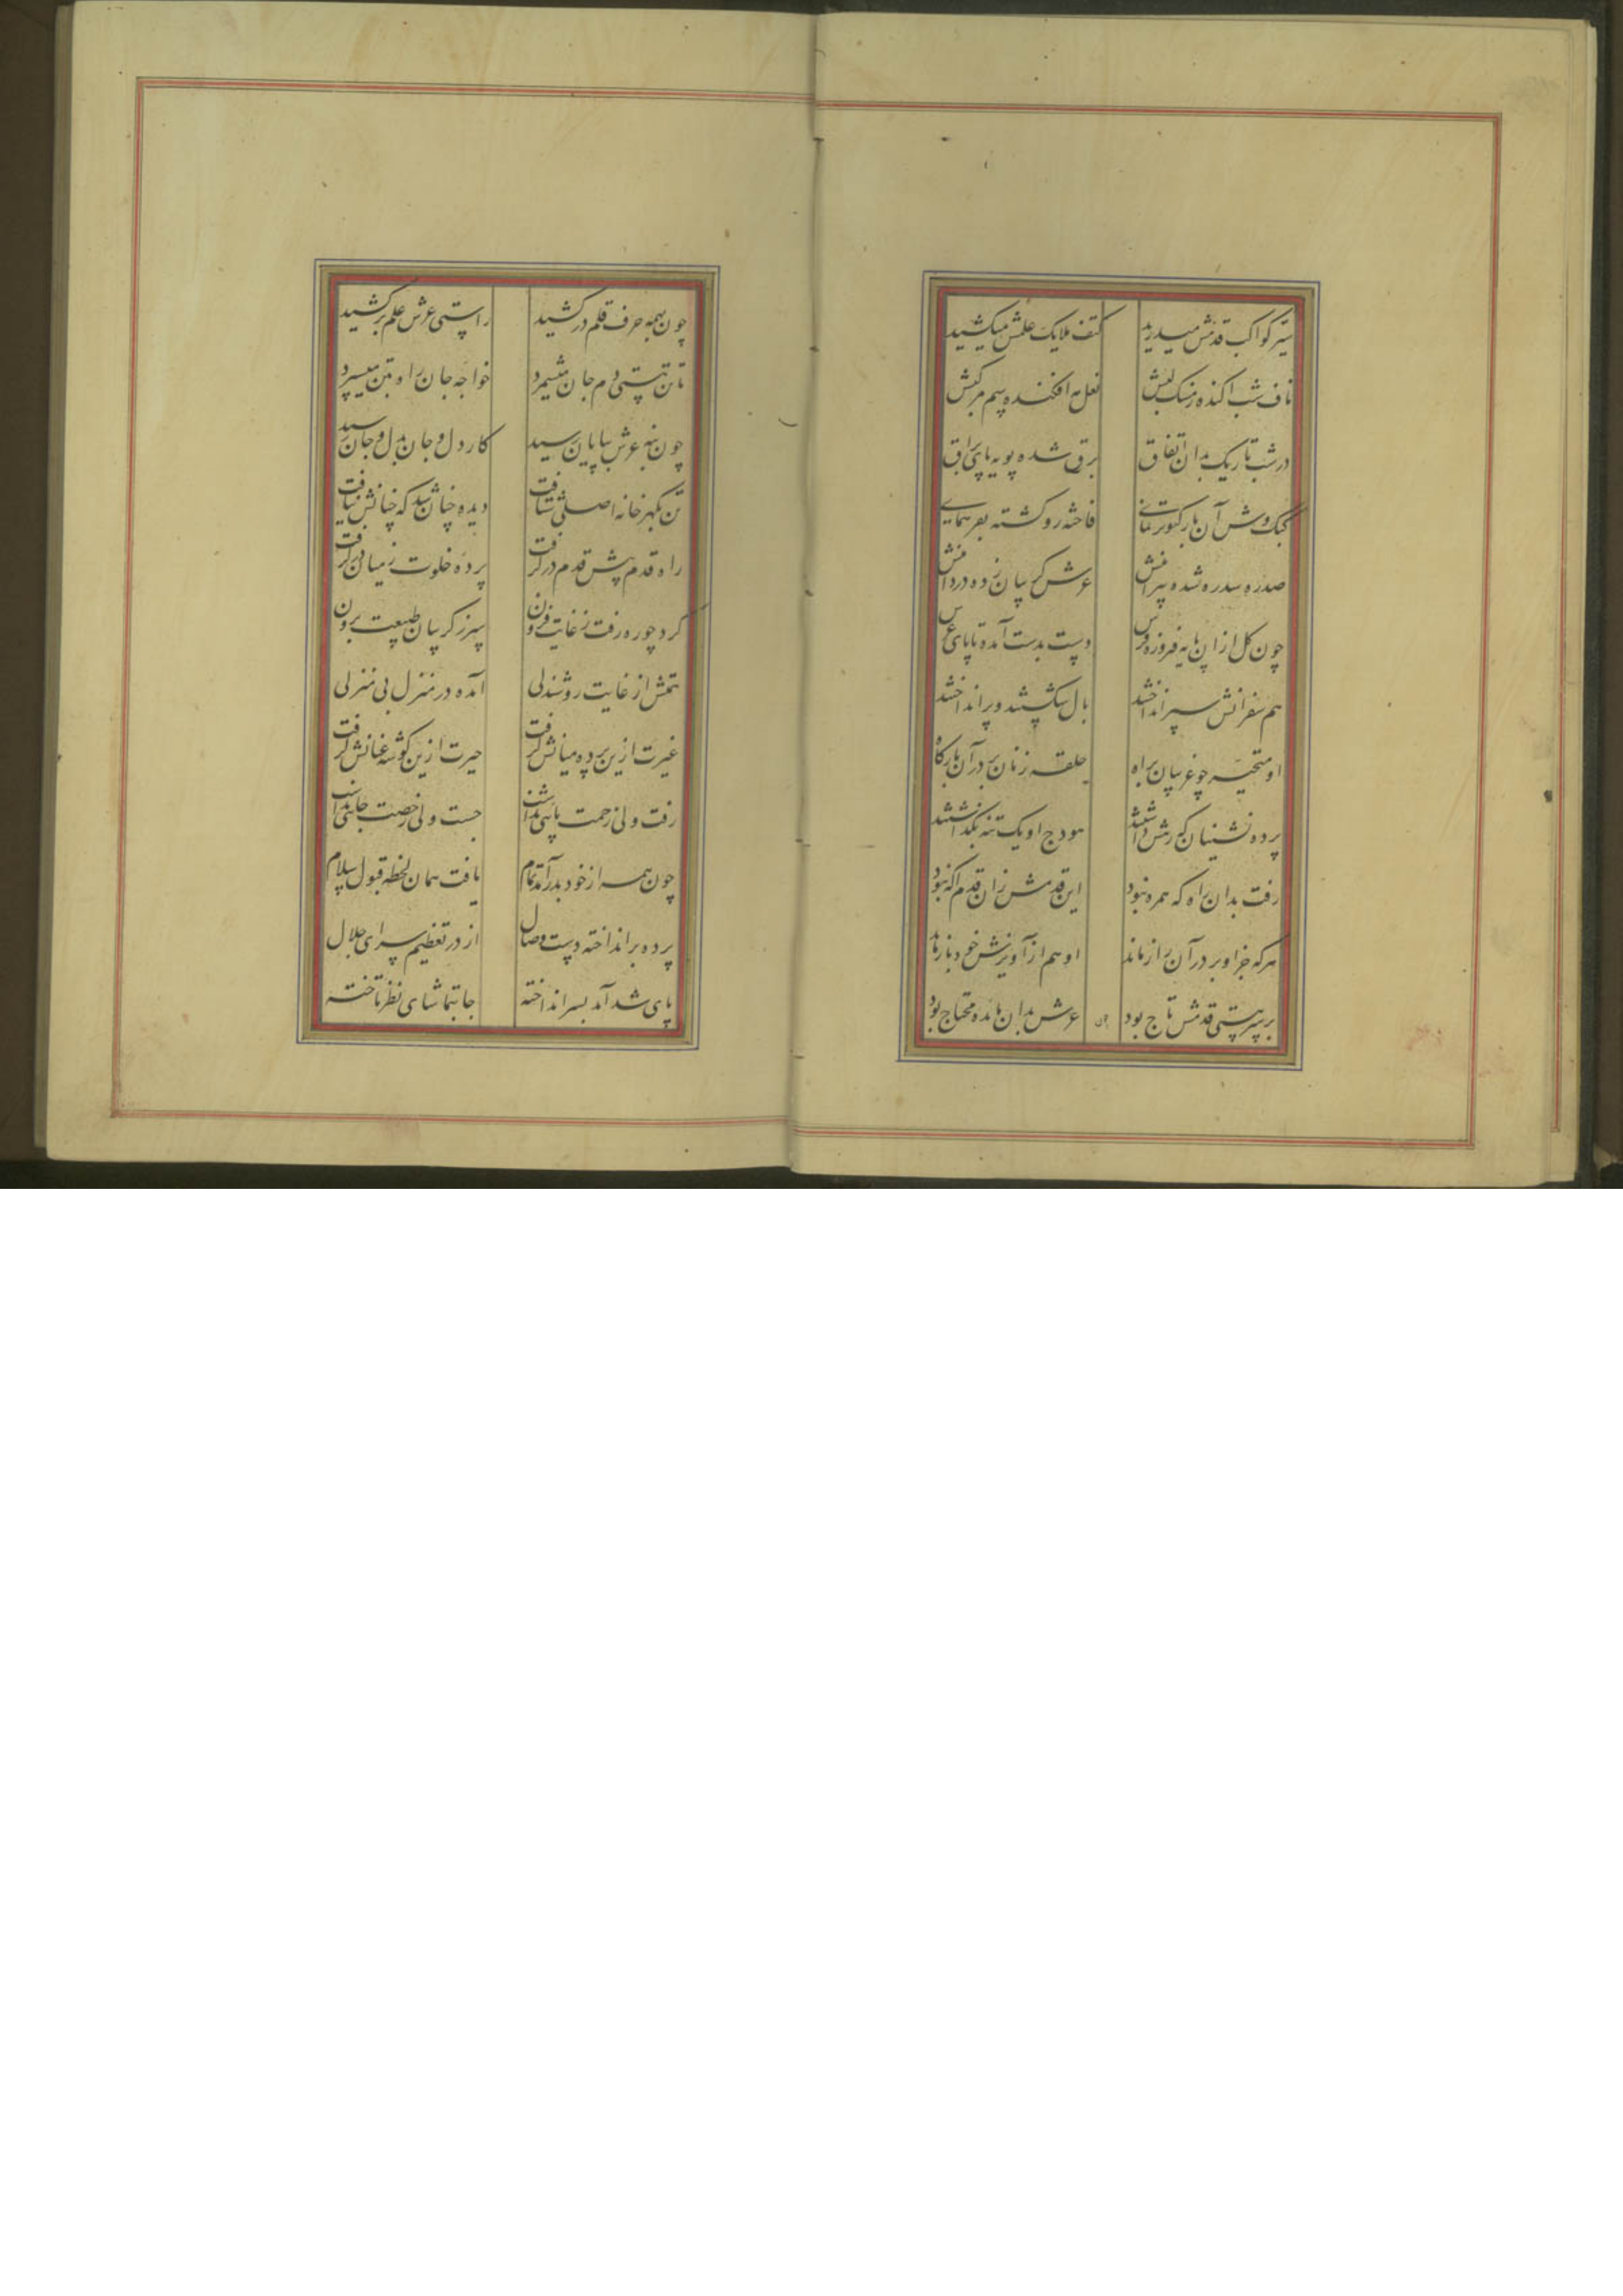 ستر کواکب قدمش میدرید کتف ملایک علمش میکشید
ناف شب آکنده ز مشک لبش نعل مه افکنده سم مرکبش
در شب تاریک بدان اتفاق برق شده پویه پای براق
کبک وش آن باز کبوتر نمای فاخته رو گشته بفر همای
صدره سدره شده پیراهنش عرش گریبان زده در دامنش
چون گل ازان پایه فیروزه فرش دست بدست آمده تا پای عرش
هم سفرانش سپر انداختند بال شکستند و پر انداختند
او متحیر چو غریبان براه حلقه زنان بر در آن بارگاه
پرده نشینان که رهش داشتند هودج او یک تنه بگذاشتند
رفت بدان راه که همره نبود این قدمش زان قدم آگه نبود
هر که جز او بر در آن راز ماند او هم از آویزش خود باز ماند
بر سر هستی قدمش تاج بود عرش بدان مائده محتاج بود
چون
چون همه حرف قلم در کشید راستی عرش علم بر کشید
تا تن هستی دم جان میشمرد خواجه جان راه بتن میسپرد
چون بنه عرش بپایان رسید کار دل و جان بدل و جان رسید
تن بگهر خانه اصلی شتافت دیده چنان شد که خیالش نیافت
راه قدم پیش قدم در گرفت پرده خلوت ز میان در گرفت
کرد چو ره رفت ز غایت فزون سر ز گریبان طبیعت برون
همتش از غایت روشندلی آمده در منزل بی منزلی
غیرت ازین پرده میانش گرفت حیرت ازین گوشه عنانش گرفت
رفت ولی زحمت پائی نداشت جست ولی رخصت جائی نداشت
چون همه از خود بدر آمد تمام یافت همان لحظه قبول سلام
پرده بر انداخته دست وصال از در تعظیم سرای جلال
پای شد آمد بسر انداخته جا بتماشای نظر تاخته